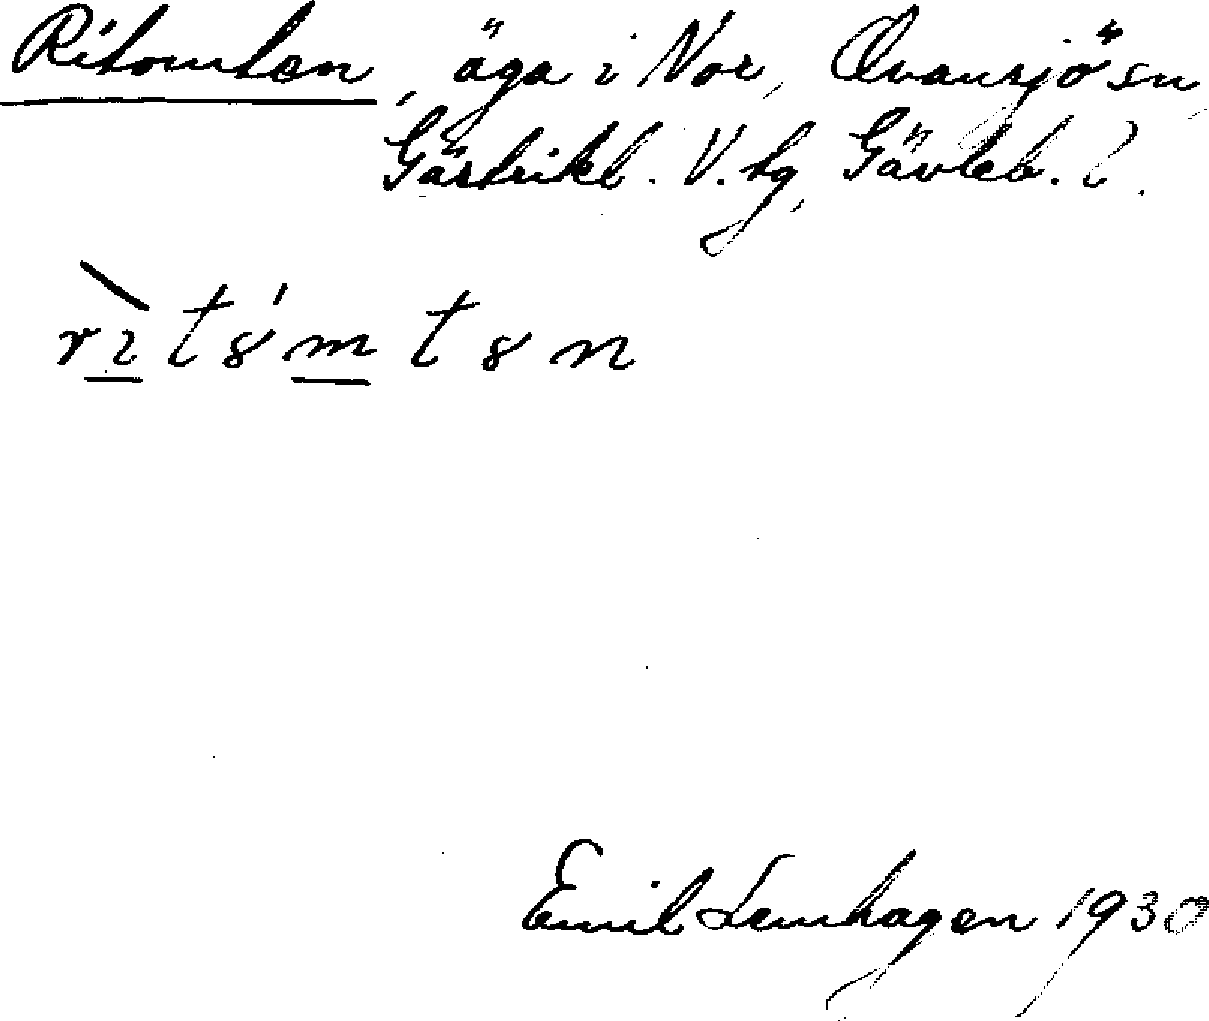 Ritomten, äga i Nor, Ovansjö sn,
Gästrikl. V. tg, Gävleb. l.
rı̀ tȣ́m tȣn
Emil Lemhagen 1930